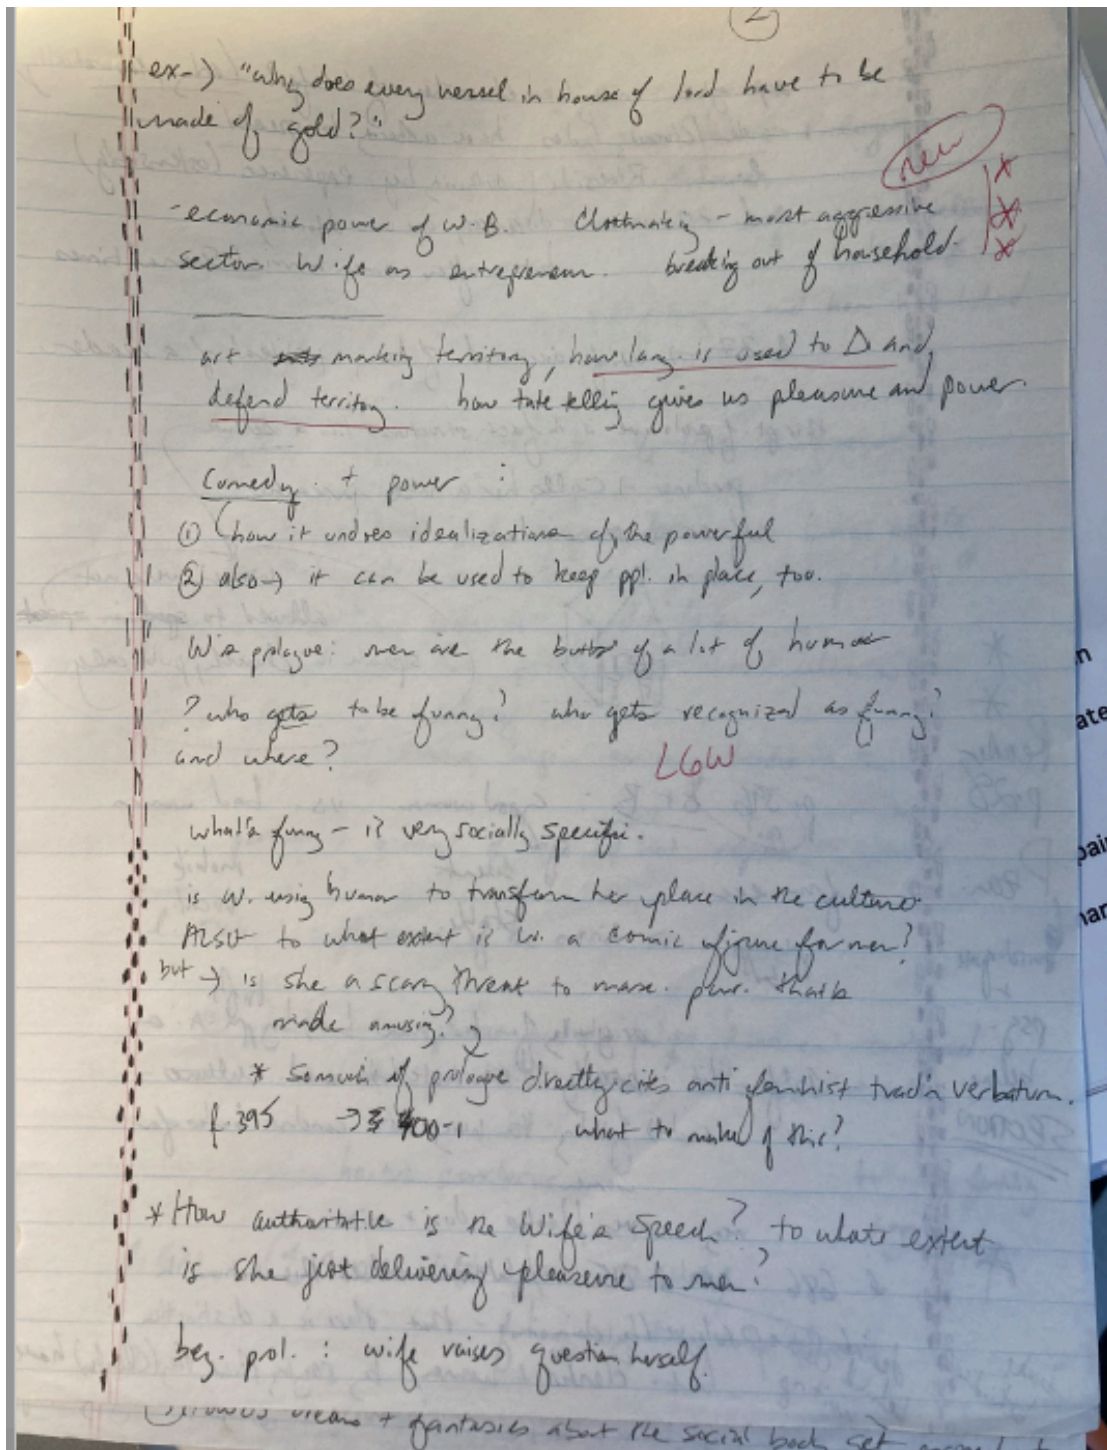 2
ex→ "why does every vessel in house of lord have to be
made of gold?"
new
- economic power of W.B. Clothmaking - most aggressive
sector. Wife as entrepreneur. breaking out of household.
art marking territory, how lang. is used to Δ and
defend territory. how tale telling gives us pleasure and power.
Comedy + power :
① how it undoes idealizations of the powerful
② also → it can be used to keep ppl. in place, too.
W's prologue: men are the butts of a lot of humor
? who gets to be funny? who gets recognized as funny?
and where?
LGW
what's funny - is very socially specific.
is W. using humor to transform her place in the culture
ALSO to what extent is W. a comic figure for men?
but → is she a scary threat to masc. pow. that's
made amusing?
* So much of prologue directly cites anti feminist trad'n verbatum.
p. 395 → 400-1 what to make of this?
* How authoritative is the Wife's Speech? to what extent
is she just delivering pleasure to men?
beg. prol. : wife raises question herself.
dreams + fantasies about the social body get
n
ate
pai
nar